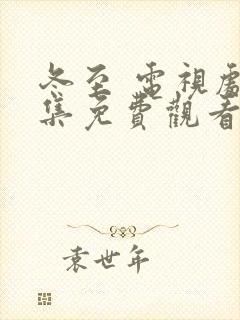 冬至 電視劇
集免費觀看
袁世年